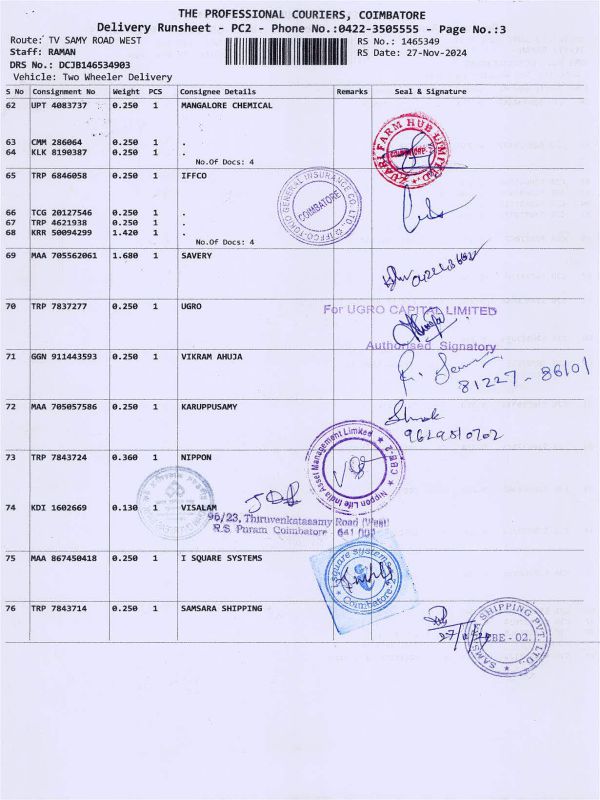 THE PROFESSIONAL COURIERS, COIMBATORE
Delivery Runsheet - PC2 - Phone No.:0422-3505555 - Page No.:3
Route: TV SAMY ROAD WEST
RS No.: 1465349
Staff: RAMAN
RS Date: 27-Nov-2024
DRS No.: DCJB146534903
Vehicle: Two Wheeler Delivery
S No Consignment No Weight PCS Consignee Details Remarks Seal & Signature
62 UPT 4083737 0.250 1 MANGALORE CHEMICAL
63 CMM 286064 0.250 1 .
64 KLK 8190387 0.250 1 .
No.Of Docs: 4
ZUARI FARM HUB LIMITED
65 TRP 6846058 0.250 1 IFFCO
66 TCG 20127546 0.250 1 .
67 TRP 4621938 0.250 1 .
68 KRR 50094299 1.420 1 .
No.Of Docs: 4
IFFCO-TOKIO GENERAL INSURANCE CO. LTD.
COIMBATORE
69 MAA 705562061 1.680 1 SAVERY
70 TRP 7837277 0.250 1 UGRO
For UGRO CAPITAL LIMITED
Authorised Signatory
71 GGN 911443593 0.250 1 VIKRAM AHUJA
81227-86101
72 MAA 705057586 0.250 1 KARUPPUSAMY
9629510702
73 TRP 7843724 0.360 1 NIPPON
Nippon Life India Asset Management Limited
CBE-2
74 KDI 1602669 0.130 1 VISALAM
96/23, Thiruvenkatasamy Road (West)
R.S. Puram Coimbatore - 641 002
75 MAA 867450418 0.250 1 I SQUARE SYSTEMS
I square systems
Coimbatore-2
76 TRP 7843714 0.250 1 SAMSARA SHIPPING
SAMSARA SHIPPING PVT. LTD.
CBE - 02.